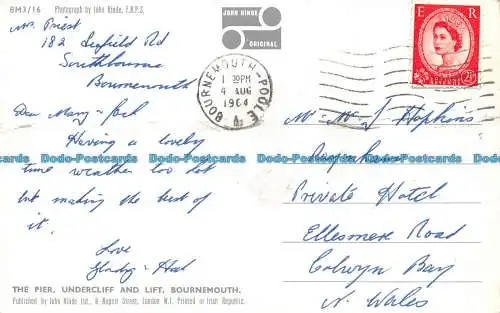 BM3/16 Photograph by John Hinde, F.R.P.S.
Mrs. Priest
182 Seafield Rd
Southbourne
Bournemouth
Dear Mary & Jack
Having a lovely
time weather too hot
but making the best of
it.
Love
Gladys &
THE PIER, UNDERCLIFF AND LIFT, BOURNEMOUTH.
Published by John Hinde Ltd., 6 Rupert Street, London W.1. Printed in Irish Republic.
JOHN HINDE
ORIGINAL
BOURNEMOUTH-POOLE
1 30PM
4 AUG
1964
E R
Mr. Mrs J Hopkins
Private Hotel
Ellesmere Road
Colwyn Bay
N. Wales
Dodo-Postcards Dodo-Postcards Dodo-Postcards Dodo-Postcards